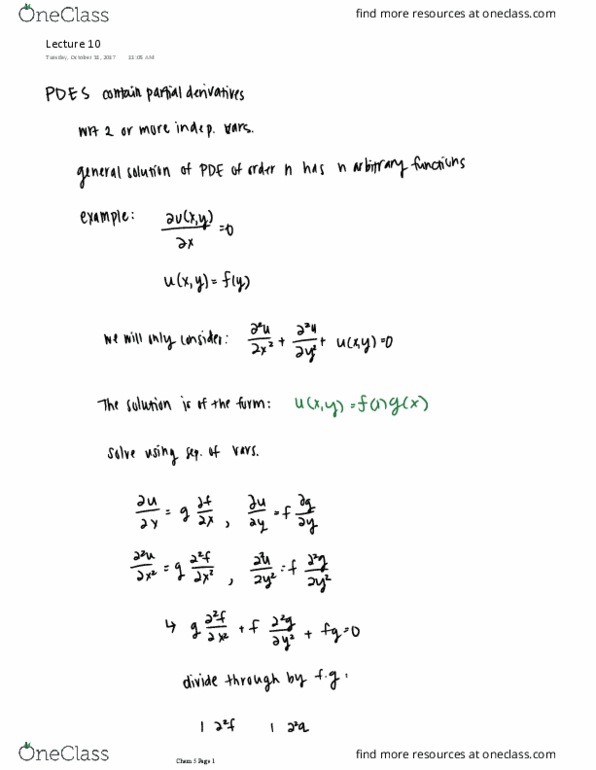 OneClass
find more resources at oneclass.com
Lecture 10
Tuesday, October 31, 2017 11:05 AM
PDES contain partial derivatives
with 2 or more indep. vars.
general solution of PDE of order n has n arbitrary functions
example: ∂u(x,y)/∂x =0
u(x,y)= f(y)
we will only consider: ∂²u/∂x² + ∂²u/∂y² + u(x,y)=0
The solution is of the form: u(x,y)=f( )g(x)
solve using sep. of vars.
∂u/∂x = g ∂f/∂x , ∂u/∂y = f ∂g/∂y
∂²u/∂x² = g ∂²f/∂x² , ∂²u/∂y² = f ∂²g/∂y²
↳ g ∂²f/∂x² + f ∂²g/∂y² + fg=0
divide through by f.g:
1 ∂²f 1 ∂²g
OneClass
Chem 5 Page 1
find more resources at oneclass.com